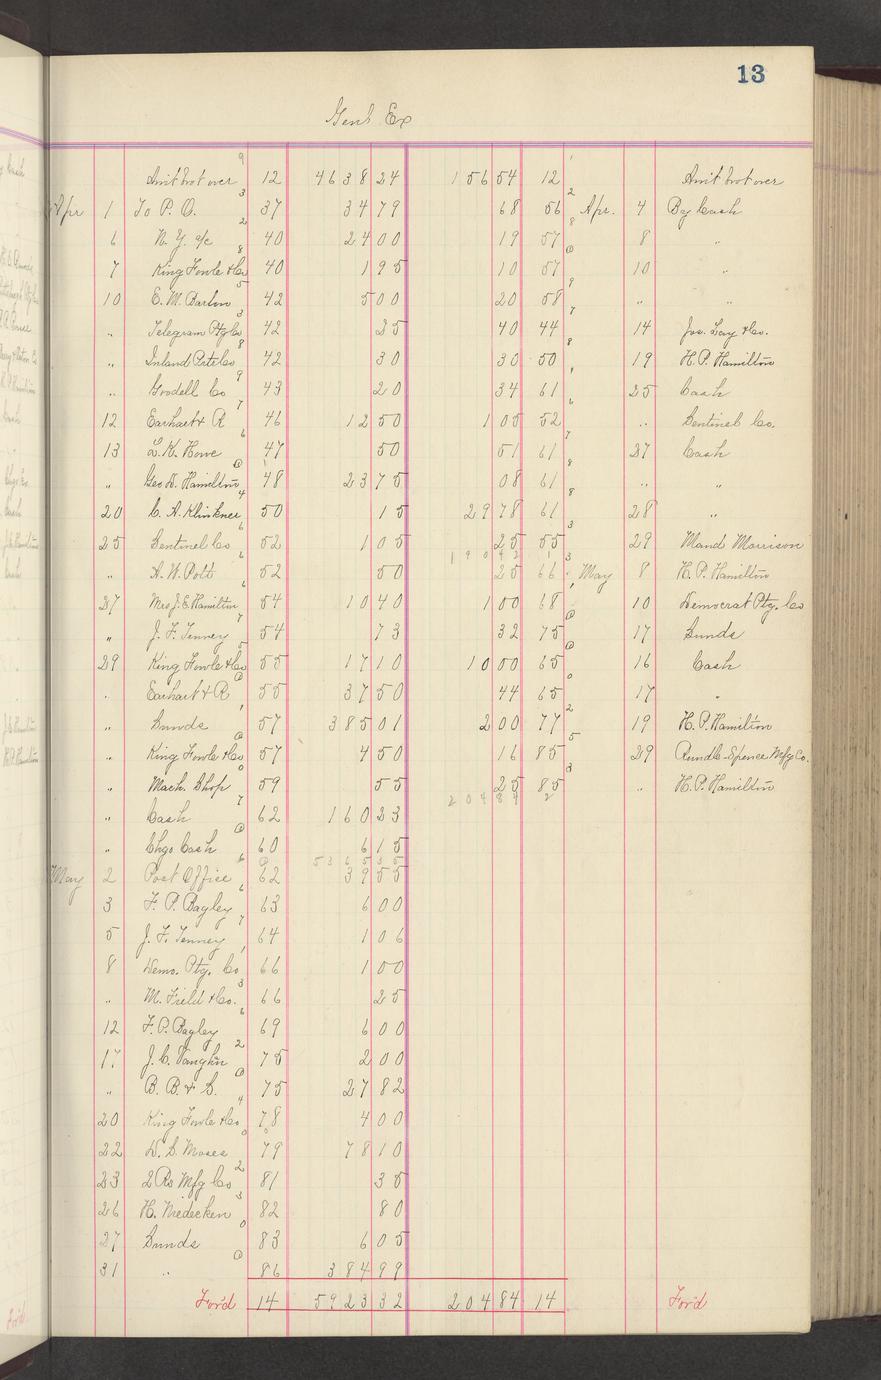 13
Genl Ex
Amt brot over 12 4638 24 156 54 12 Amt brot over
Apr 1 To P. O. 37 34 79 68 56 Apr. 4 By Cash
6 N. Y. a/c 40 24 00 19 57 8 "
7 King Fowle & Co 40 1 95 10 57 10 "
10 E. M. Barton 42 5 00 20 58 " "
" Telegram Ptg Co 42 35 40 44 14 Jos. Lay & Co.
" Inland Prtr Co 42 30 30 50 19 H. P. Hamilton
" Goodell Co 43 20 34 61 25 Cash
12 Earhart & R 46 12 50 1 05 52 " Sentinel Co.
13 L. K. Howe 47 50 51 61 27 Cash
" Geo H. Hamilton 48 23 75 08 61 " "
20 C. A. Klinkner 50 15 29 78 61 28 "
25 Sentinel Co 52 1 05 25 55 29 Maud Morrison
190 42
" A. W. Pott 52 50 25 66 May 8 H. P. Hamilton
27 Mrs J. E. Hamilton 54 10 40 1 00 68 10 Democrat Ptg. Co
" J. F. Tenney 54 73 32 75 17 Sunds
29 King Fowle & Co 55 17 10 10 00 65 16 Cash
" Earhart & R 55 37 50 44 65 17 "
" Sunds 57 385 01 2 00 77 19 H. P. Hamilton
" King Fowle & Co 57 4 50 16 85 29 Rundle-Spence Mfg Co.
" Mach. Shop 59 55 25 85 " H. P. Hamilton
204 84
" Cash 62 160 23
" Chgo Cash 60 6 15
5365 35
May 2 Post Office 62 39 55
3 F. P. Bagley 63 6 00
5 J. F. Tenney 64 1 06
8 Demo. Ptg. Co 66 1 00
" M. Field & Co. 66 25
12 F. P. Bagley 69 6 00
17 J. C. Vaughn 75 2 00
" B. B. & S. 75 27 82
20 King Fowle & Co 78 4 00
22 W. S. Moses 79 78 10
23 2 Rs Mfg Co 81 35
26 H. Niedecken 82 80
27 Sunds 83 6 05
31 " 86 384 99
For'd 14 5923 32 204 84 14 For'd